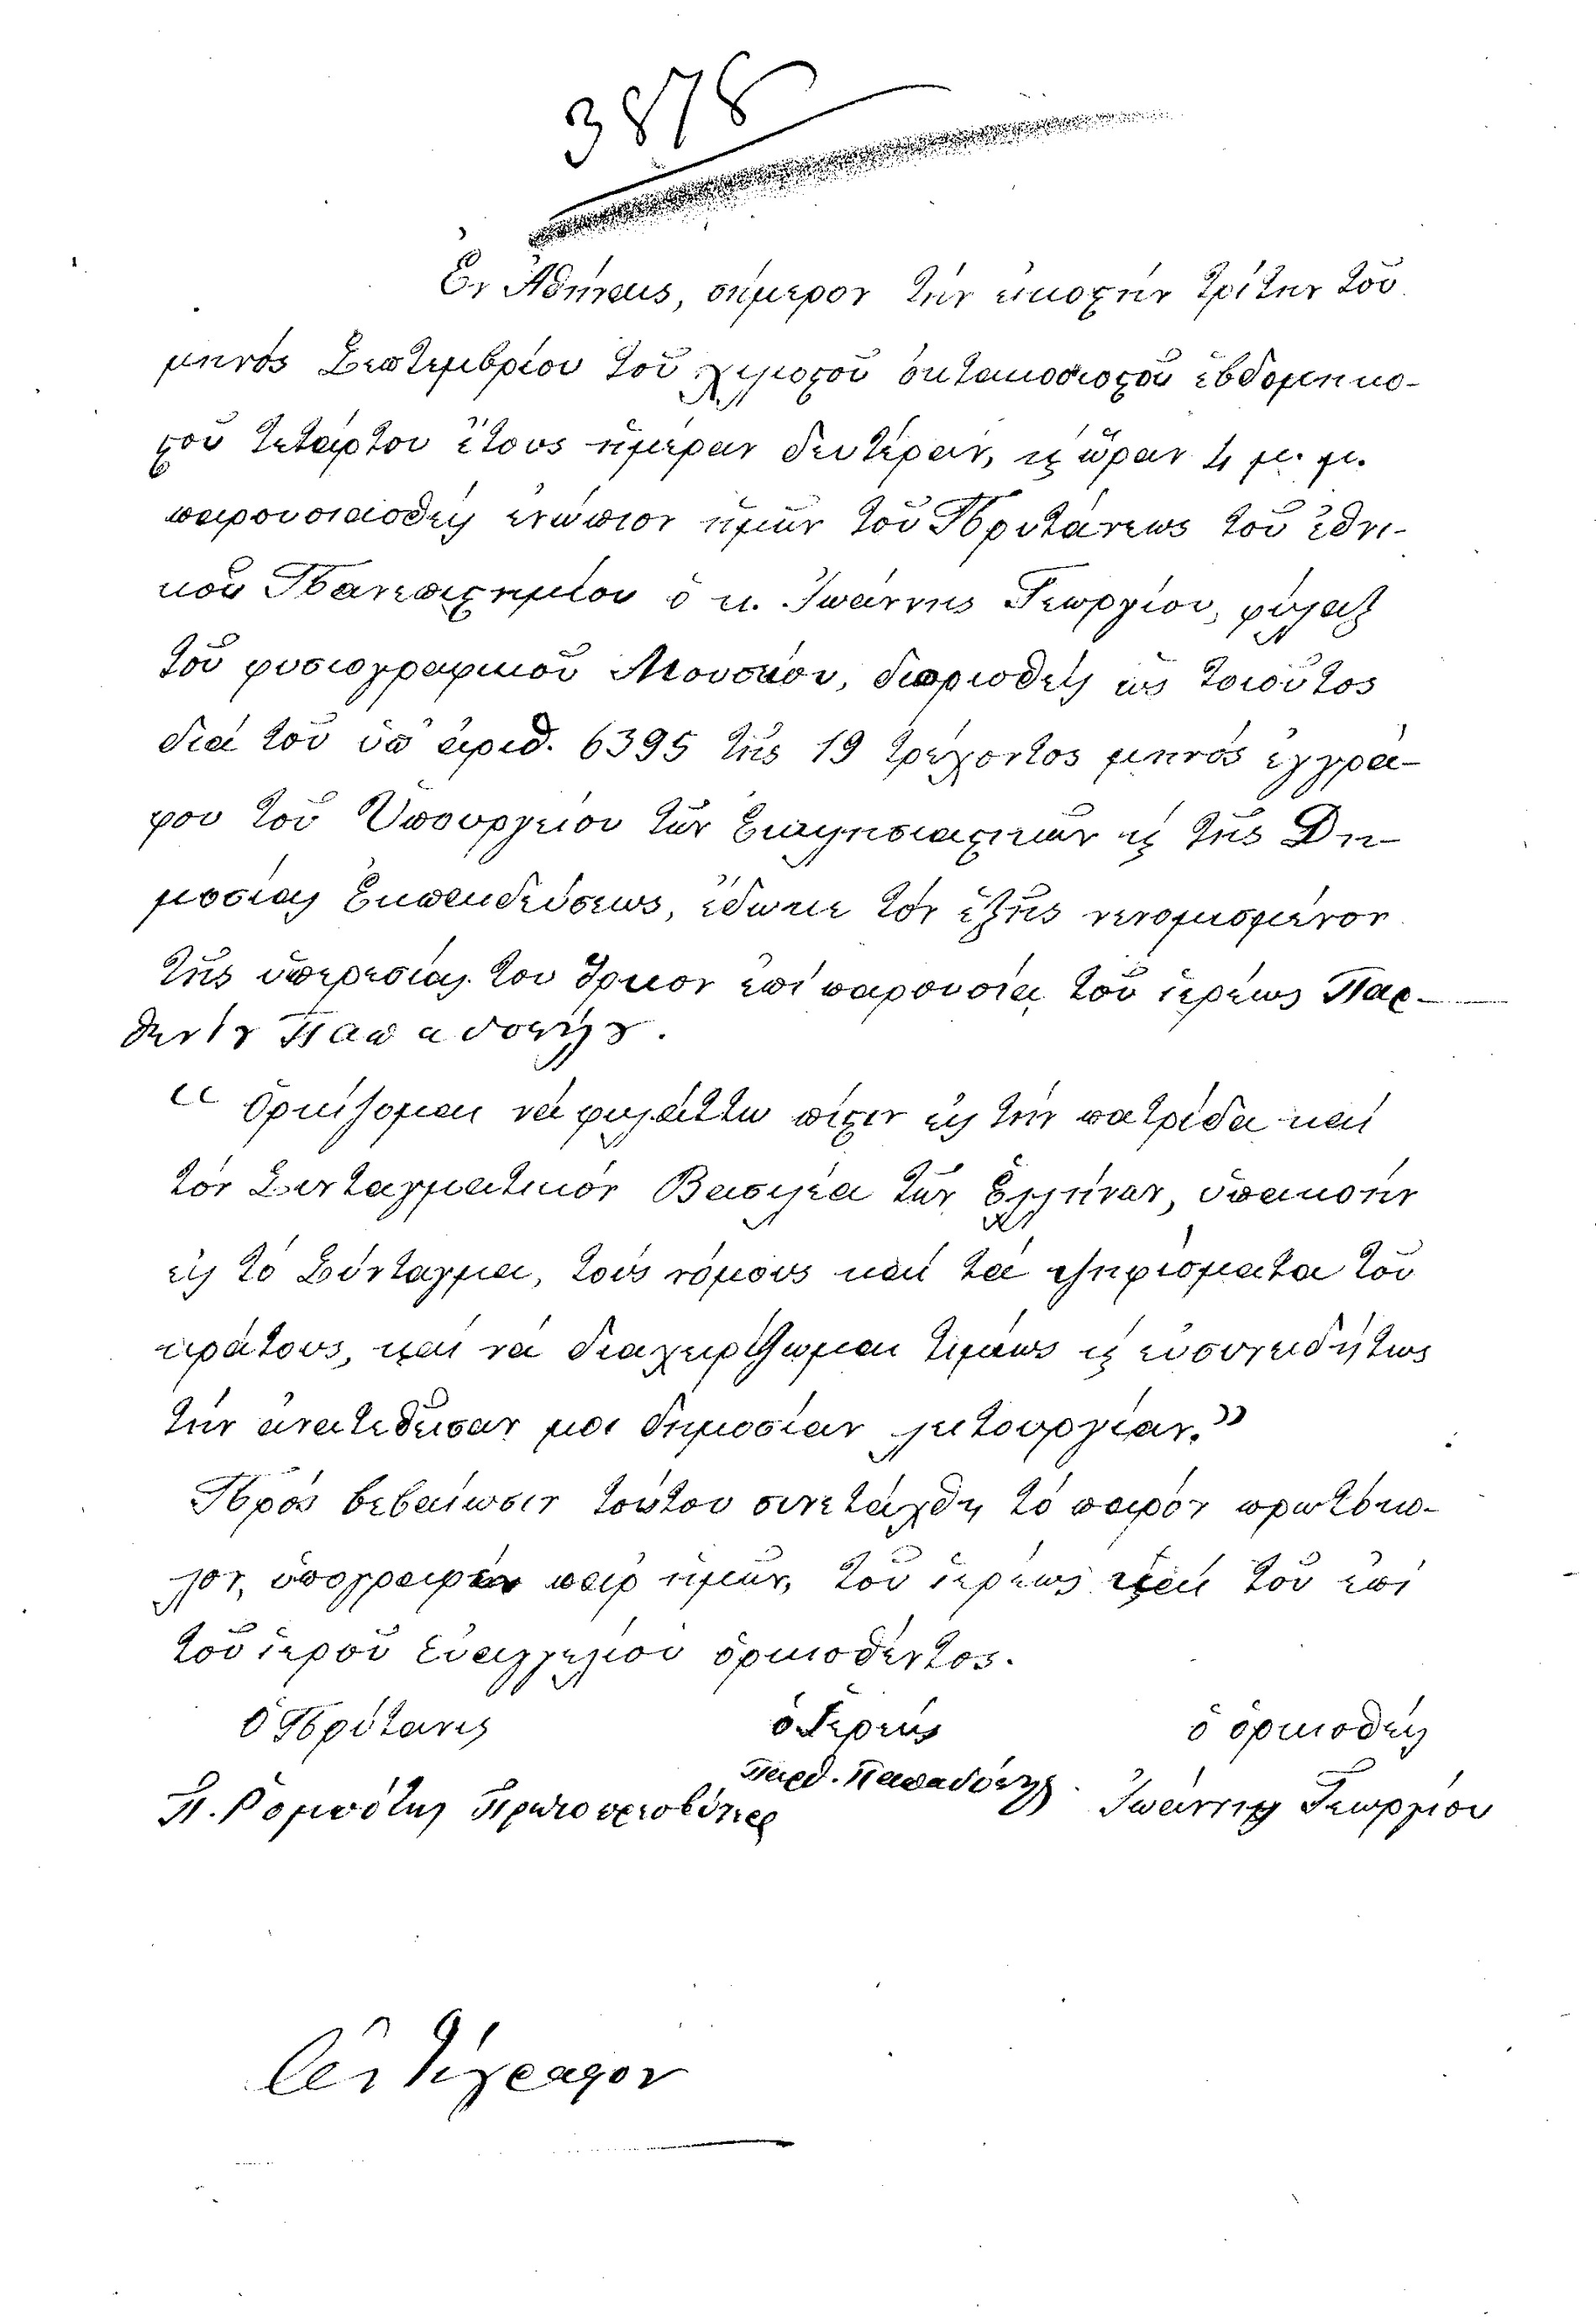 3878
Ἐν Ἀθήναις, σήμερον τήν εἰκοστήν τρίτην τοῦ
μηνός Σεπτεμβρίου τοῦ χιλιοστοῦ ὀκτακοσιοστοῦ ἑβδομηκο-
στοῦ τετάρτου ἔτους ἡμέραν δευτέραν, ϗ ὥραν 4 μ. μ.
παρουσιασθείς ἐνώπιον ἡμῶν τοῦ Πρυτάνεως τοῦ ἐθνι-
κοῦ Πανεπιστημίου ὁ κ. Ἰωάννης Γεωργίου, φύλαξ
τοῦ φυσιογραφικοῦ Μουσείου, διορισθείς ὡς τοιοῦτος
διά τοῦ ὑπ' ἀριθ. 6395 τῆς 19 τρέχοντος μηνός ἐγγρά-
φου τοῦ Ὑπουργείου τῶν Ἐκκλησιαστικῶν ϗ τῆς Δη-
μοσίας Ἐκπαιδεύσεως, ἔδωκε τόν ἑξῆς νενομισμένον
τῆς ὑπηρεσίας του ὅρκον ἐπί παρουσίᾳ τοῦ ἱερέως Παρ-
θενίου Παπαδοπούλου.
“ Ὁρκίζομαι νά φυλάττω πίστιν εἰς τήν πατρίδα καί
τόν Συνταγματικόν Βασιλέα τῶν Ἑλλήνων, ὑπακοήν
εἰς τό Σύνταγμα, τούς νόμους καί τά ψηφίσματα τοῦ
κράτους, καί νά διαχειρίζωμαι τιμίως ϗ εὐσυνειδήτως
τήν ἀνατεθεῖσαν μοι δημοσίαν λειτουργίαν.”
Πρός βεβαίωσιν τούτου συνετάχθη τό παρόν πρωτόκο-
λον, ὑπογραφέν παρ ἡμῶν, τοῦ ἱερέως καί τοῦ ἐπί
τοῦ ἱεροῦ Εὐαγγελίου ὁρκισθέντος.
Ὁ Πρύτανις ὁ Ἱερεύς ὁ ὁρκισθείς
Π. Ρομπότης Πρωτοπρεσβύτερ Παρθ. Παπαδόπουλος Ἰωάννης Γεωργίου
Ἀντίγραφον